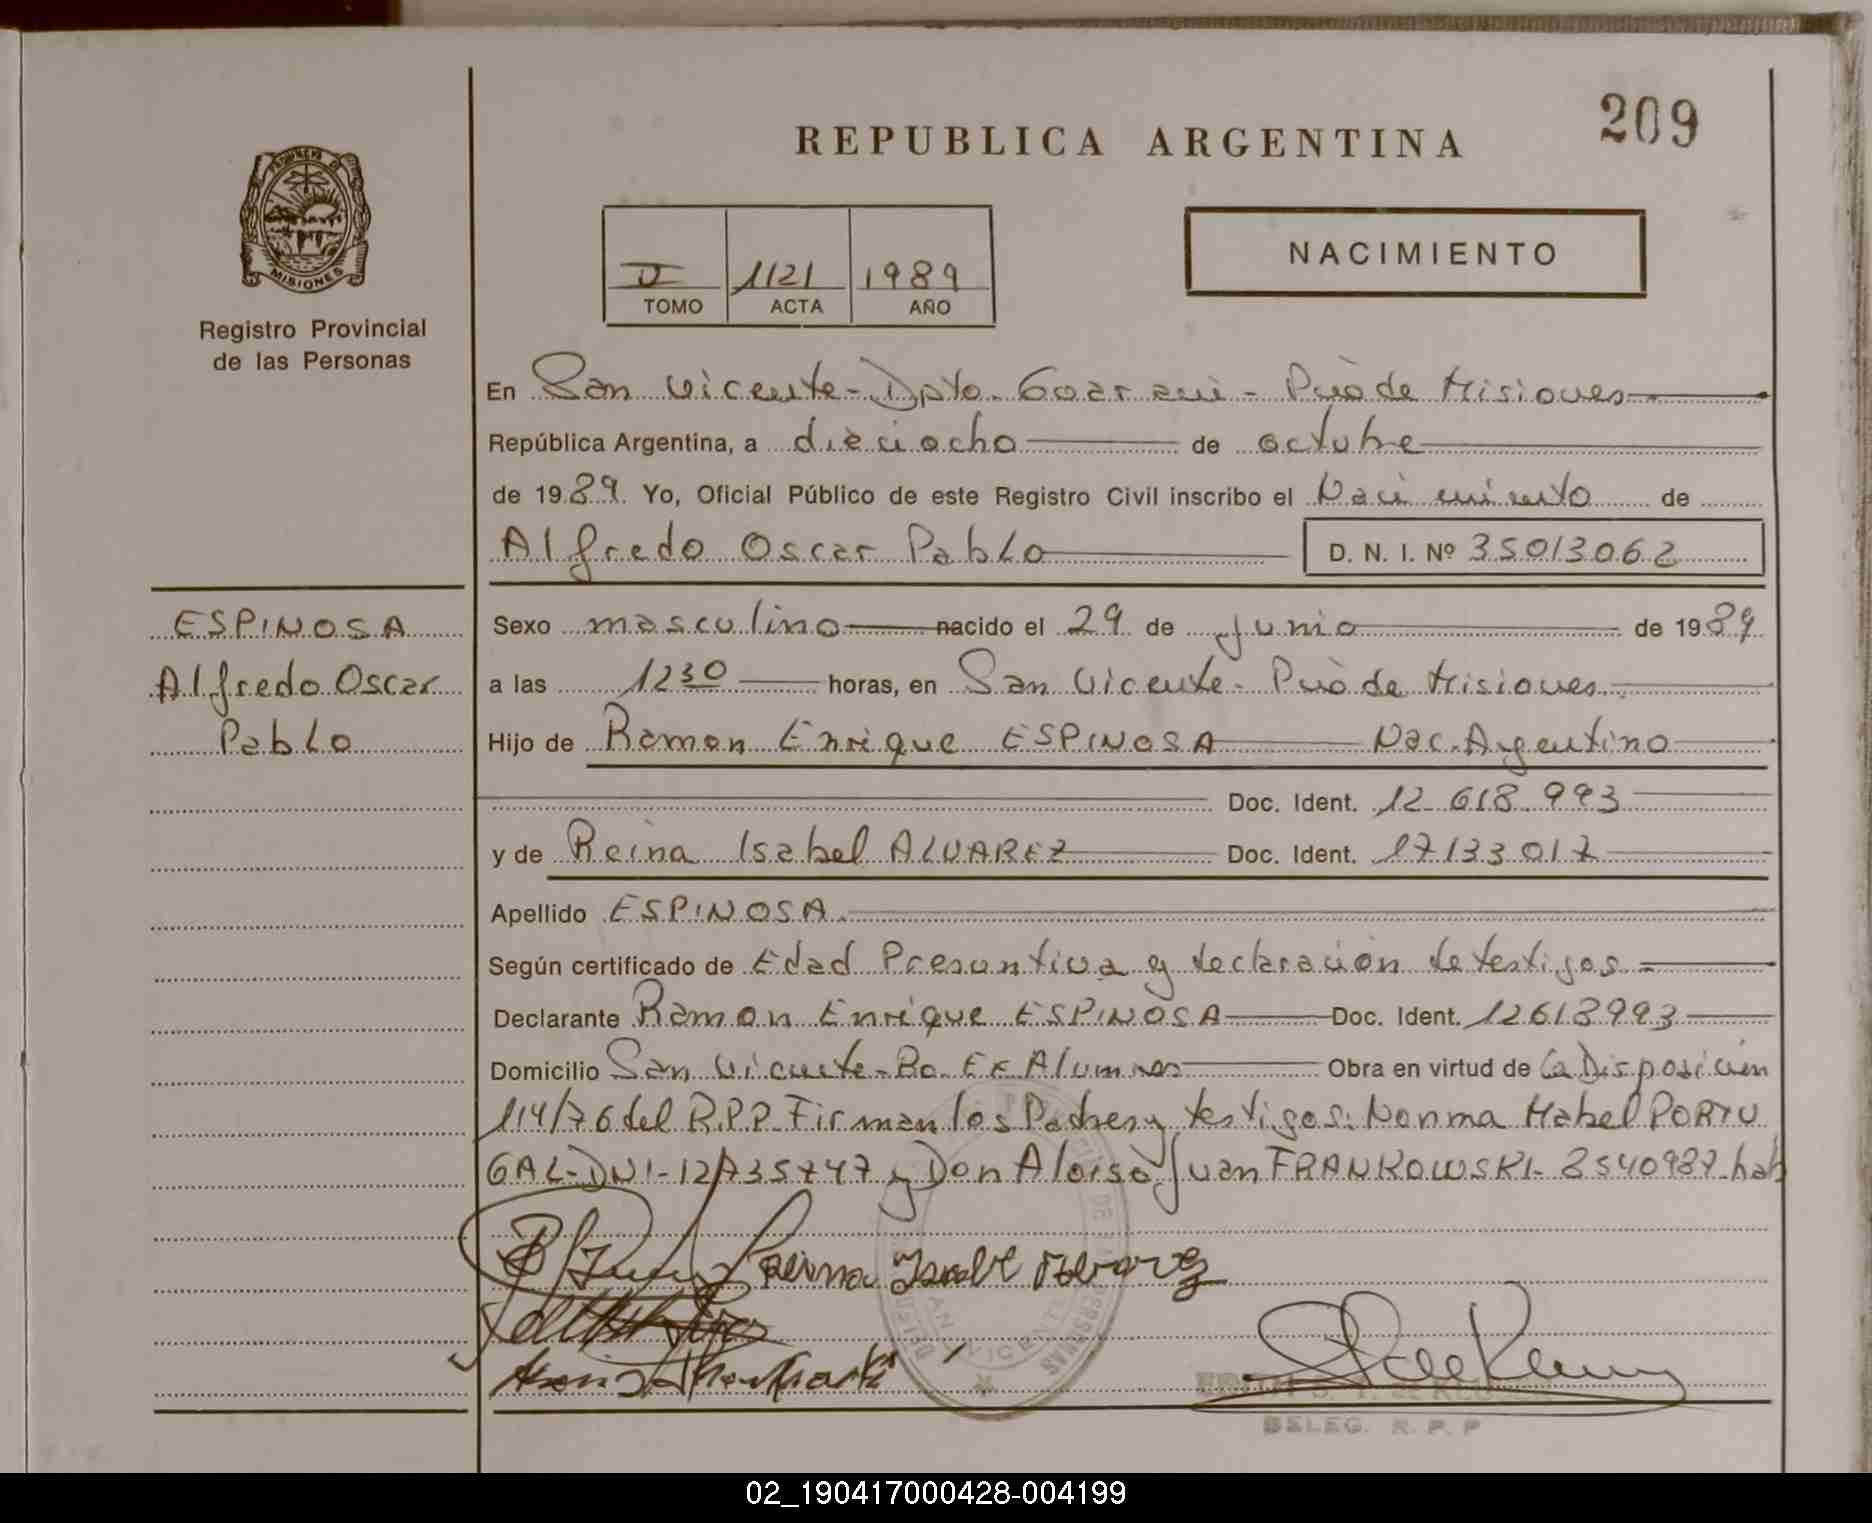 209
REPUBLICA ARGENTINA
PROVINCIA DE
MISIONES
Registro Provincial
de las Personas
II 1121 1989
TOMO ACTA AÑO
NACIMIENTO
En San Vicente - Dpto. Guarani - Pciò de Misiones
República Argentina, a dieciocho de octubre
de 1989. Yo, Oficial Público de este Registro Civil inscribo el Nacimiento de
Alfredo Oscar Pablo D. N. I. Nº 35013062
ESPINOSA
Alfredo Oscar
Pablo
Sexo masculino nacido el 29 de junio de 1989
a las 12 30 horas, en San Vicente - Pciò de Misiones
Hijo de Ramon Enrique ESPINOSA Nac. Argentino
Doc. Ident. 12.618.993
y de Reina Isabel ALVAREZ Doc. Ident. 17133017
Apellido ESPINOSA
Según certificado de Edad Presuntiva y declaración de testigos
Declarante Ramon Enrique ESPINOSA Doc. Ident. 12618993
Domicilio San Vicente - Bo. Ex Alumnos Obra en virtud de la Disposicion
114/76 del R.P.P. Firman los Padres y testigos: Norma Mabel PORTU
GAL - DNI - 12735747 y Don Aloiso Juan FRANKOWSKI - 8540987 - hab
Reina Isabel Alvarez
DELEG. R. P. P
02_190417000428-004199